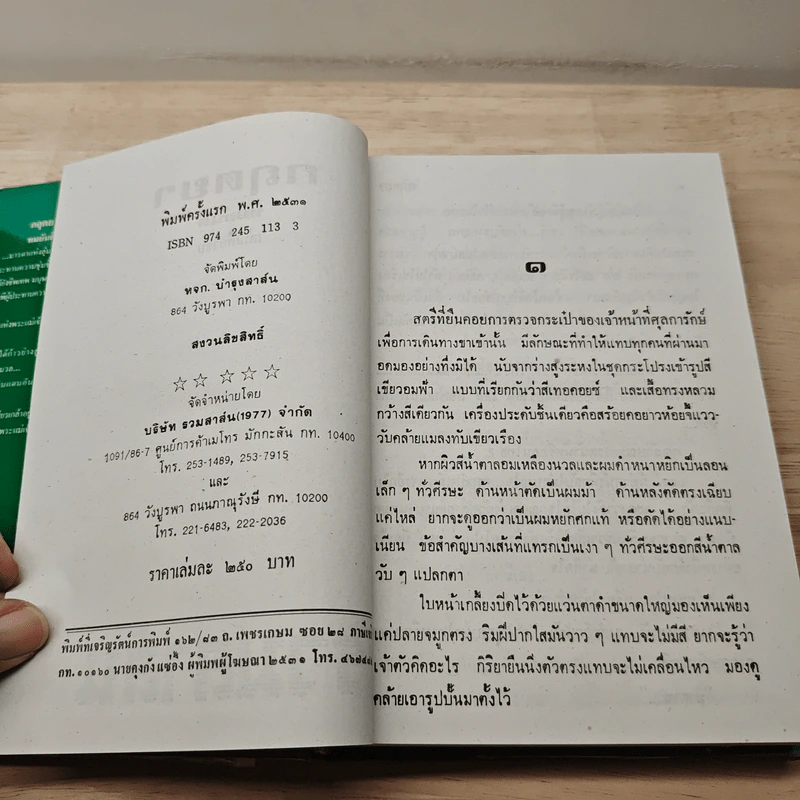 พิมพ์ครั้งแรก พ.ศ. ๒๕๓๑
ISBN 974 245 113 3
จัดพิมพ์โดย
หจก. บำรุงสาส์น
864 วังบูรพา กท. 10200
สงวนลิขสิทธิ์
☆☆ ☆☆☆
จัดจำหน่ายโดย
บริษัท รวมสาส์น(1977) จำกัด
1091/86-7 ศูนย์การค้าเมโทร มักกะสัน กท. 10400
โทร. 253-1489, 253-7915
และ
864 วังบูรพา ถนนภาณุรังษี กท. 10200
โทร. 221-6483, 222-2036
ราคาเล่มละ ๒๕๐ บาท
พิมพ์ที่เจริญรัตน์การพิมพ์ ๑๖๒/๘๓ ถ. เพชรเกษม ซอย ๒๘
กท. ๑๐๑๖๐ นายคุงกัง แซ่อึ้ง ผู้พิมพ์ผู้โฆษณา ๒๕๓๑ โทร.
๑
สตรีที่ยืนคอยการตรวจกระเป๋าของเจ้าหน้าที่ศุลการักษ์
เพื่อการเดินทางขาเข้านั้น มีลักษณะที่ทำให้แทบทุกคนที่ผ่านมา
อดมองอย่างทึ่งมิได้ นับจากร่างสูงระหงในชุดกระโปรงเข้ารูปสี
เขียวอมฟ้า แบบที่เรียกกันว่าสีเทอคอยซ์ และเสื้อทรงหลวม
กว้างสีเดียวกัน เครื่องประดับชิ้นเดียวคือสร้อยคอยาวห้อยจี้แวว-
วับคล้ายแมลงทับเขียวเรือง
หากผิวสีน้ำตาลอมเหลืองนวลและผมดำหนาหยิกเป็นลอน
เล็ก ๆ ทั่วศีรษะ ด้านหน้าตัดเป็นผมม้า ด้านหลังตัดตรงเฉียบ
แค่ไหล่ ยากจะดูออกว่าเป็นผมหยักศกแท้ หรือดัดได้อย่างแนบ-
เนียน ข้อสำคัญบางเส้นที่แทรกเป็นเงา ๆ ทั่วศีรษะออกสีน้ำตาล
วับ ๆ แปลกตา
ใบหน้าเกลี้ยงปิดไว้ด้วยแว่นตาดำขนาดใหญ่มองเห็นเพียง
แค่ปลายจมูกตรง ริมฝีปากใสมันวาว ๆ แทบจะไม่มีสี ยากจะรู้ว่า
เจ้าตัวคิดอะไร กิริยายืนนิ่งตัวตรงแทบจะไม่เคลื่อนไหว มองดู
คล้ายเอารูปปั้นมาตั้งไว้